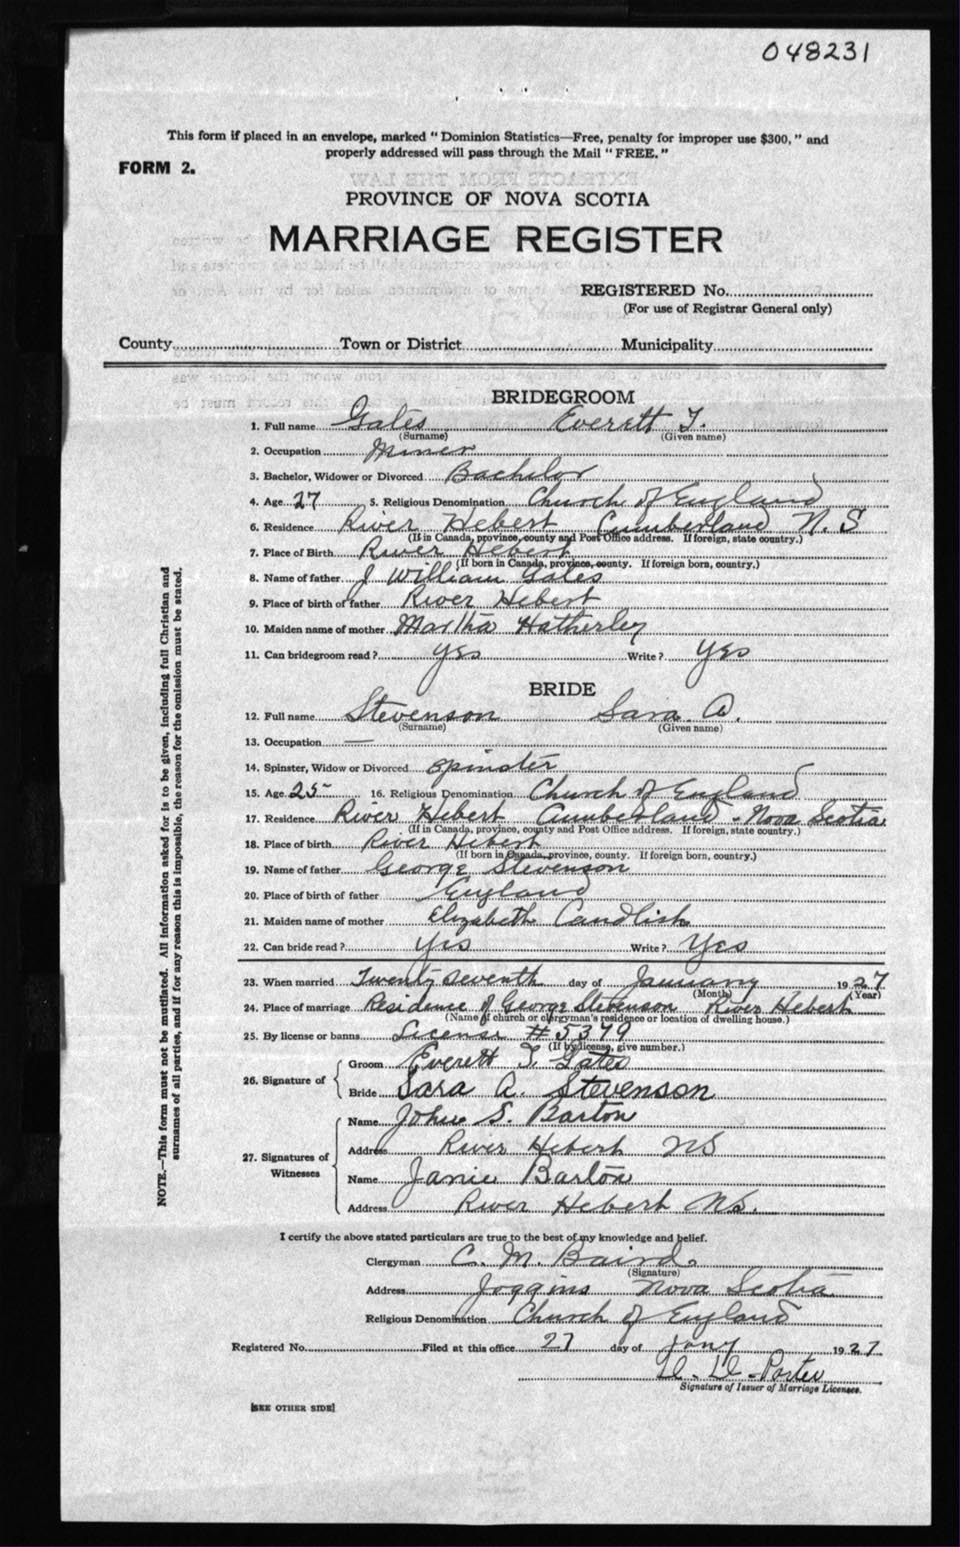 048231
This form if placed in an envelope, marked "Dominion Statistics—Free, penalty for improper use $300," and
properly addressed will pass through the Mail "FREE."
FORM 2.
PROVINCE OF NOVA SCOTIA
MARRIAGE REGISTER
REGISTERED No.
(For use of Registrar General only)
County Town or District Municipality
BRIDEGROOM
1. Full name Gates Everett T.
(Surname) (Given name)
2. Occupation Miner
3. Bachelor, Widower or Divorced Bachelor
4. Age 27 5. Religious Denomination Church of England
6. Residence River Hebert Cumberland N.S
(If in Canada, province, county and Post Office address. If foreign, state country.)
7. Place of Birth River Hebert
(If born in Canada, province, county. If foreign born, country.)
8. Name of father J William Gates
9. Place of birth of father River Hebert
10. Maiden name of mother Martha Hatherley
11. Can bridegroom read? yes Write? yes
BRIDE
12. Full name Stevenson Sara A.
(Surname) (Given name)
13. Occupation —
14. Spinster, Widow or Divorced spinster
15. Age 25 16. Religious Denomination Church of England
17. Residence River Hebert Cumberland - Nova Scotia
(If in Canada, province, county and Post Office address. If foreign, state country.)
18. Place of birth River Hebert
(If born in Canada, province, county. If foreign born, country.)
19. Name of father George Stevenson
20. Place of birth of father England
21. Maiden name of mother Elizabeth Candlish
22. Can bride read? yes Write? yes
23. When married Twenty seventh day of January 1927
(Month) (Year)
24. Place of marriage Residence of George Stevenson River Hebert
(Name of church or clergyman's residence or location of dwelling house.)
25. By license or banns License # 5379
(If by license, give number.)
26. Signature of
Groom Everett T. Gates
Bride Sara A. Stevenson
27. Signatures of Witnesses
Name John S. Barton
Address River Hebert NS
Name Janie Barton
Address River Hebert NS.
I certify the above stated particulars are true to the best of my knowledge and belief.
Clergyman C. M. Baird
(Signature)
Address Joggins Nova Scotia
Religious Denomination Church of England
Registered No. Filed at this office 27 day of Jany 1927
Porter
Signature of Issuer of Marriage Licenses.
[SEE OTHER SIDE]
NOTE.—This form must not be mutilated. All information asked for is to be given, including full Christian and
surnames of all parties, and if for any reason this is impossible, the reason for the omission must be stated.